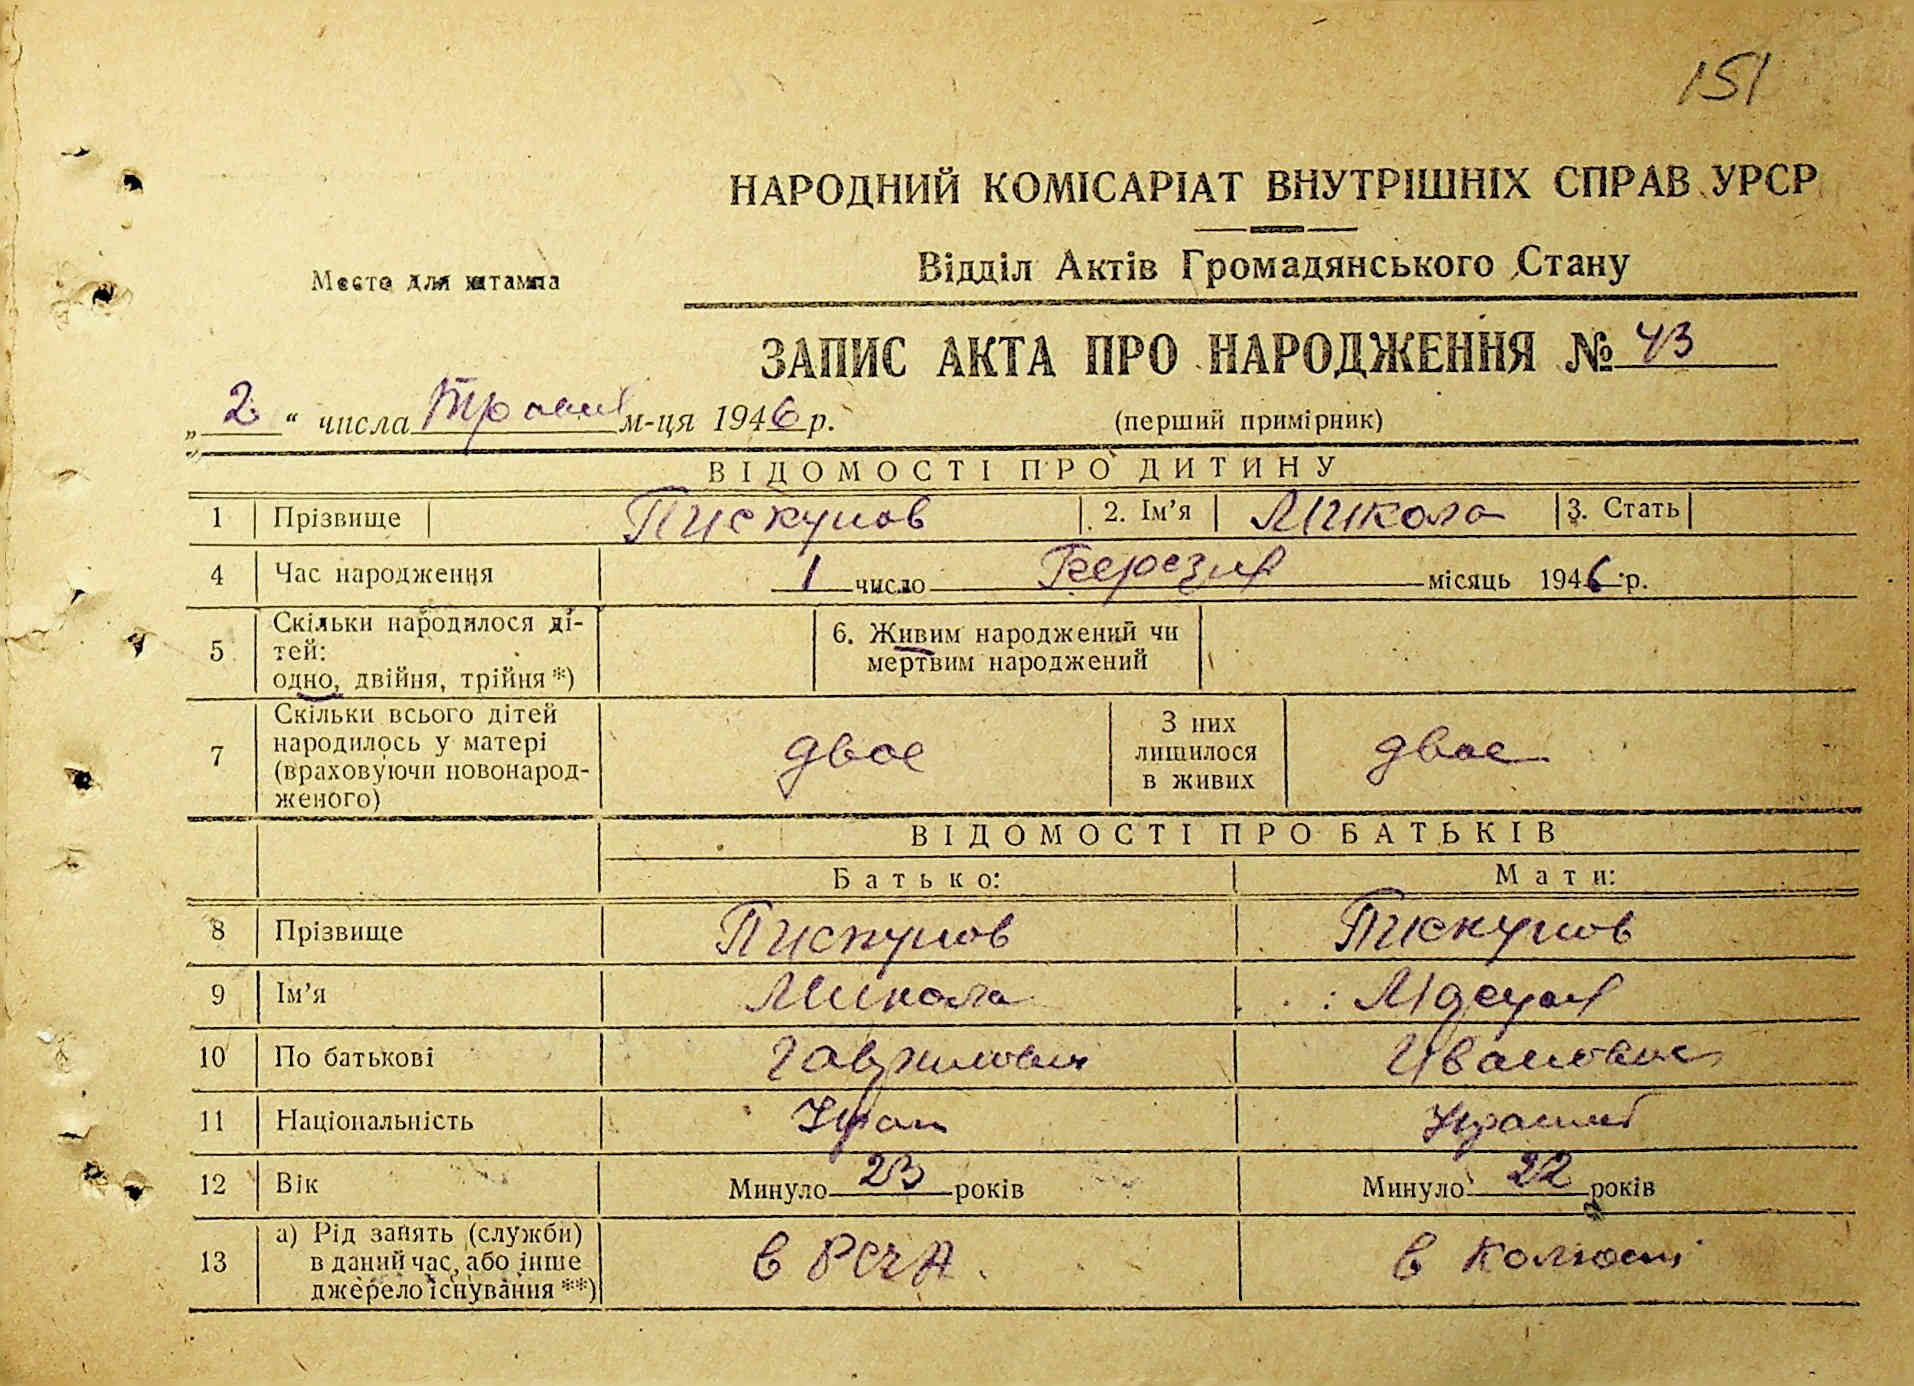 151
НАРОДНИЙ КОМІСАРІАТ ВНУТРІШНІХ СПРАВ УРСР
Відділ Актів Громадянського Стану
Место для штампа
ЗАПИС АКТА ПРО НАРОДЖЕННЯ № 43
„ 2 “ числа Травня м-ця 1946 р. (перший примірник)
ВІДОМОСТІ ПРО ДИТИНУ
1 Прізвище Пискунов 2. Ім’я Микола 3. Стать
4 Час народження 1 число Березня місяць 1946 р.
5 Скільки народилося ді-
тей:
одно, двійня, трійня *)
6. Живим народжений чи
мертвим народжений
7 Скільки всього дітей
народилось у матері
(враховуючи новонарод-
женого)
двое
З них
лишилося
в живих
двое
ВІДОМОСТІ ПРО БАТЬКІВ
Батько: Мати:
8 Прізвище Пискунов Пискунов
9 Ім’я Микола
10 По батькові Гаврилович
11 Національність Укра
12 Вік Минуло 23 років Минуло 22 років
13 а) Рід занять (служби)
в даний час, або інше
джерело існування **)
в РСЧА в колгоспі